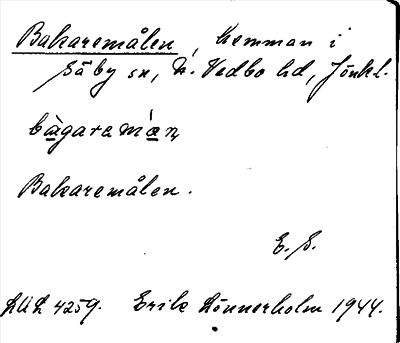 Bakaremålen, hemman i
Säby sn, N. Vedbo hd, Jönk l.
bàgaremɑ́ɷɳ
Bakaremålen.
E. S.
LUL 4259. Erik Lönnerholm 1944.